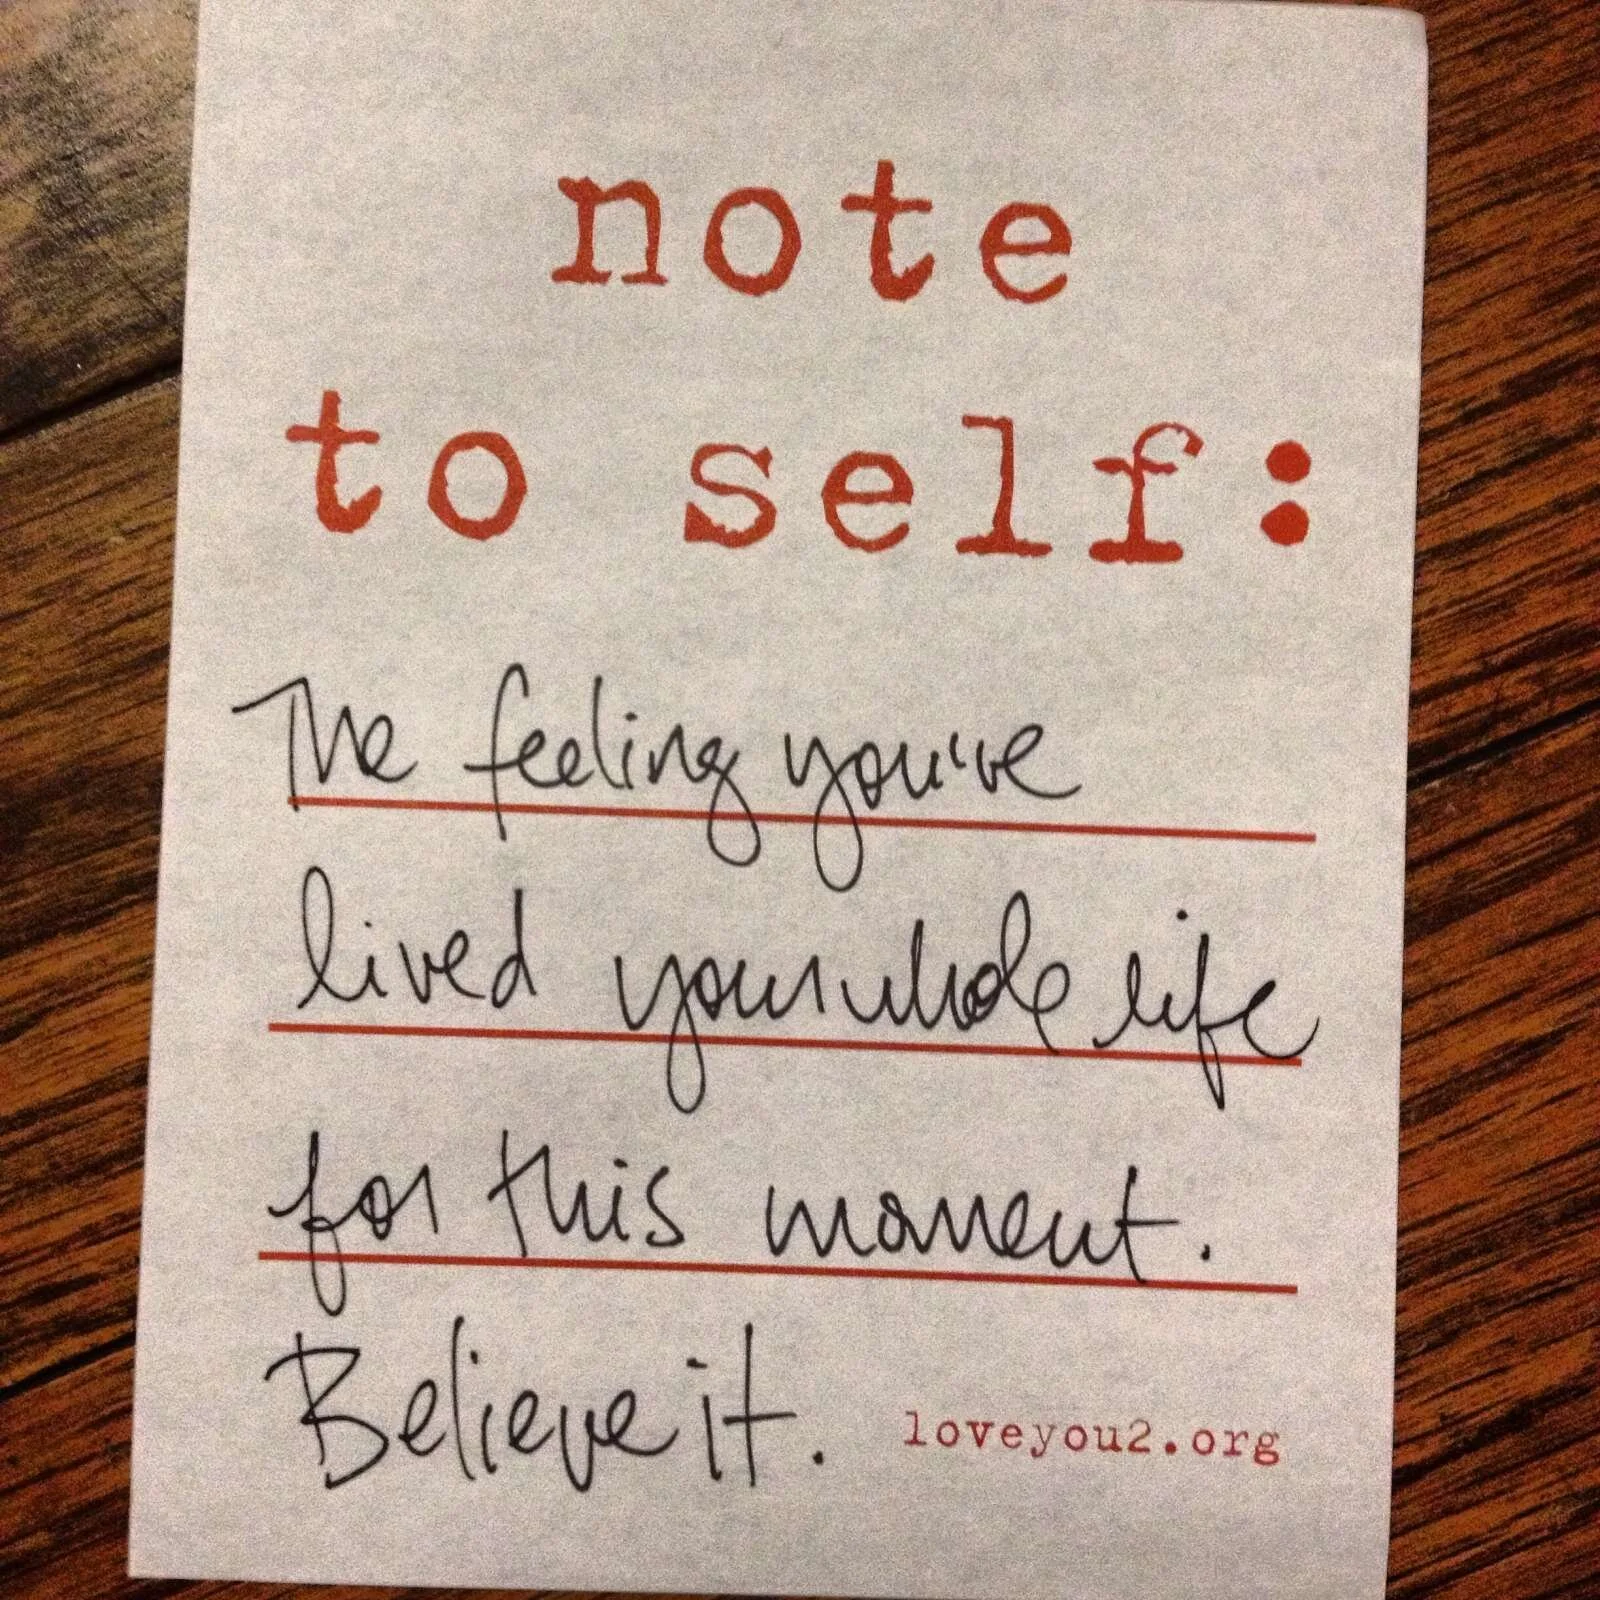 note
to self:
The feeling you've
lived your whole life
for this moment.
Believe it.
loveyou2.org